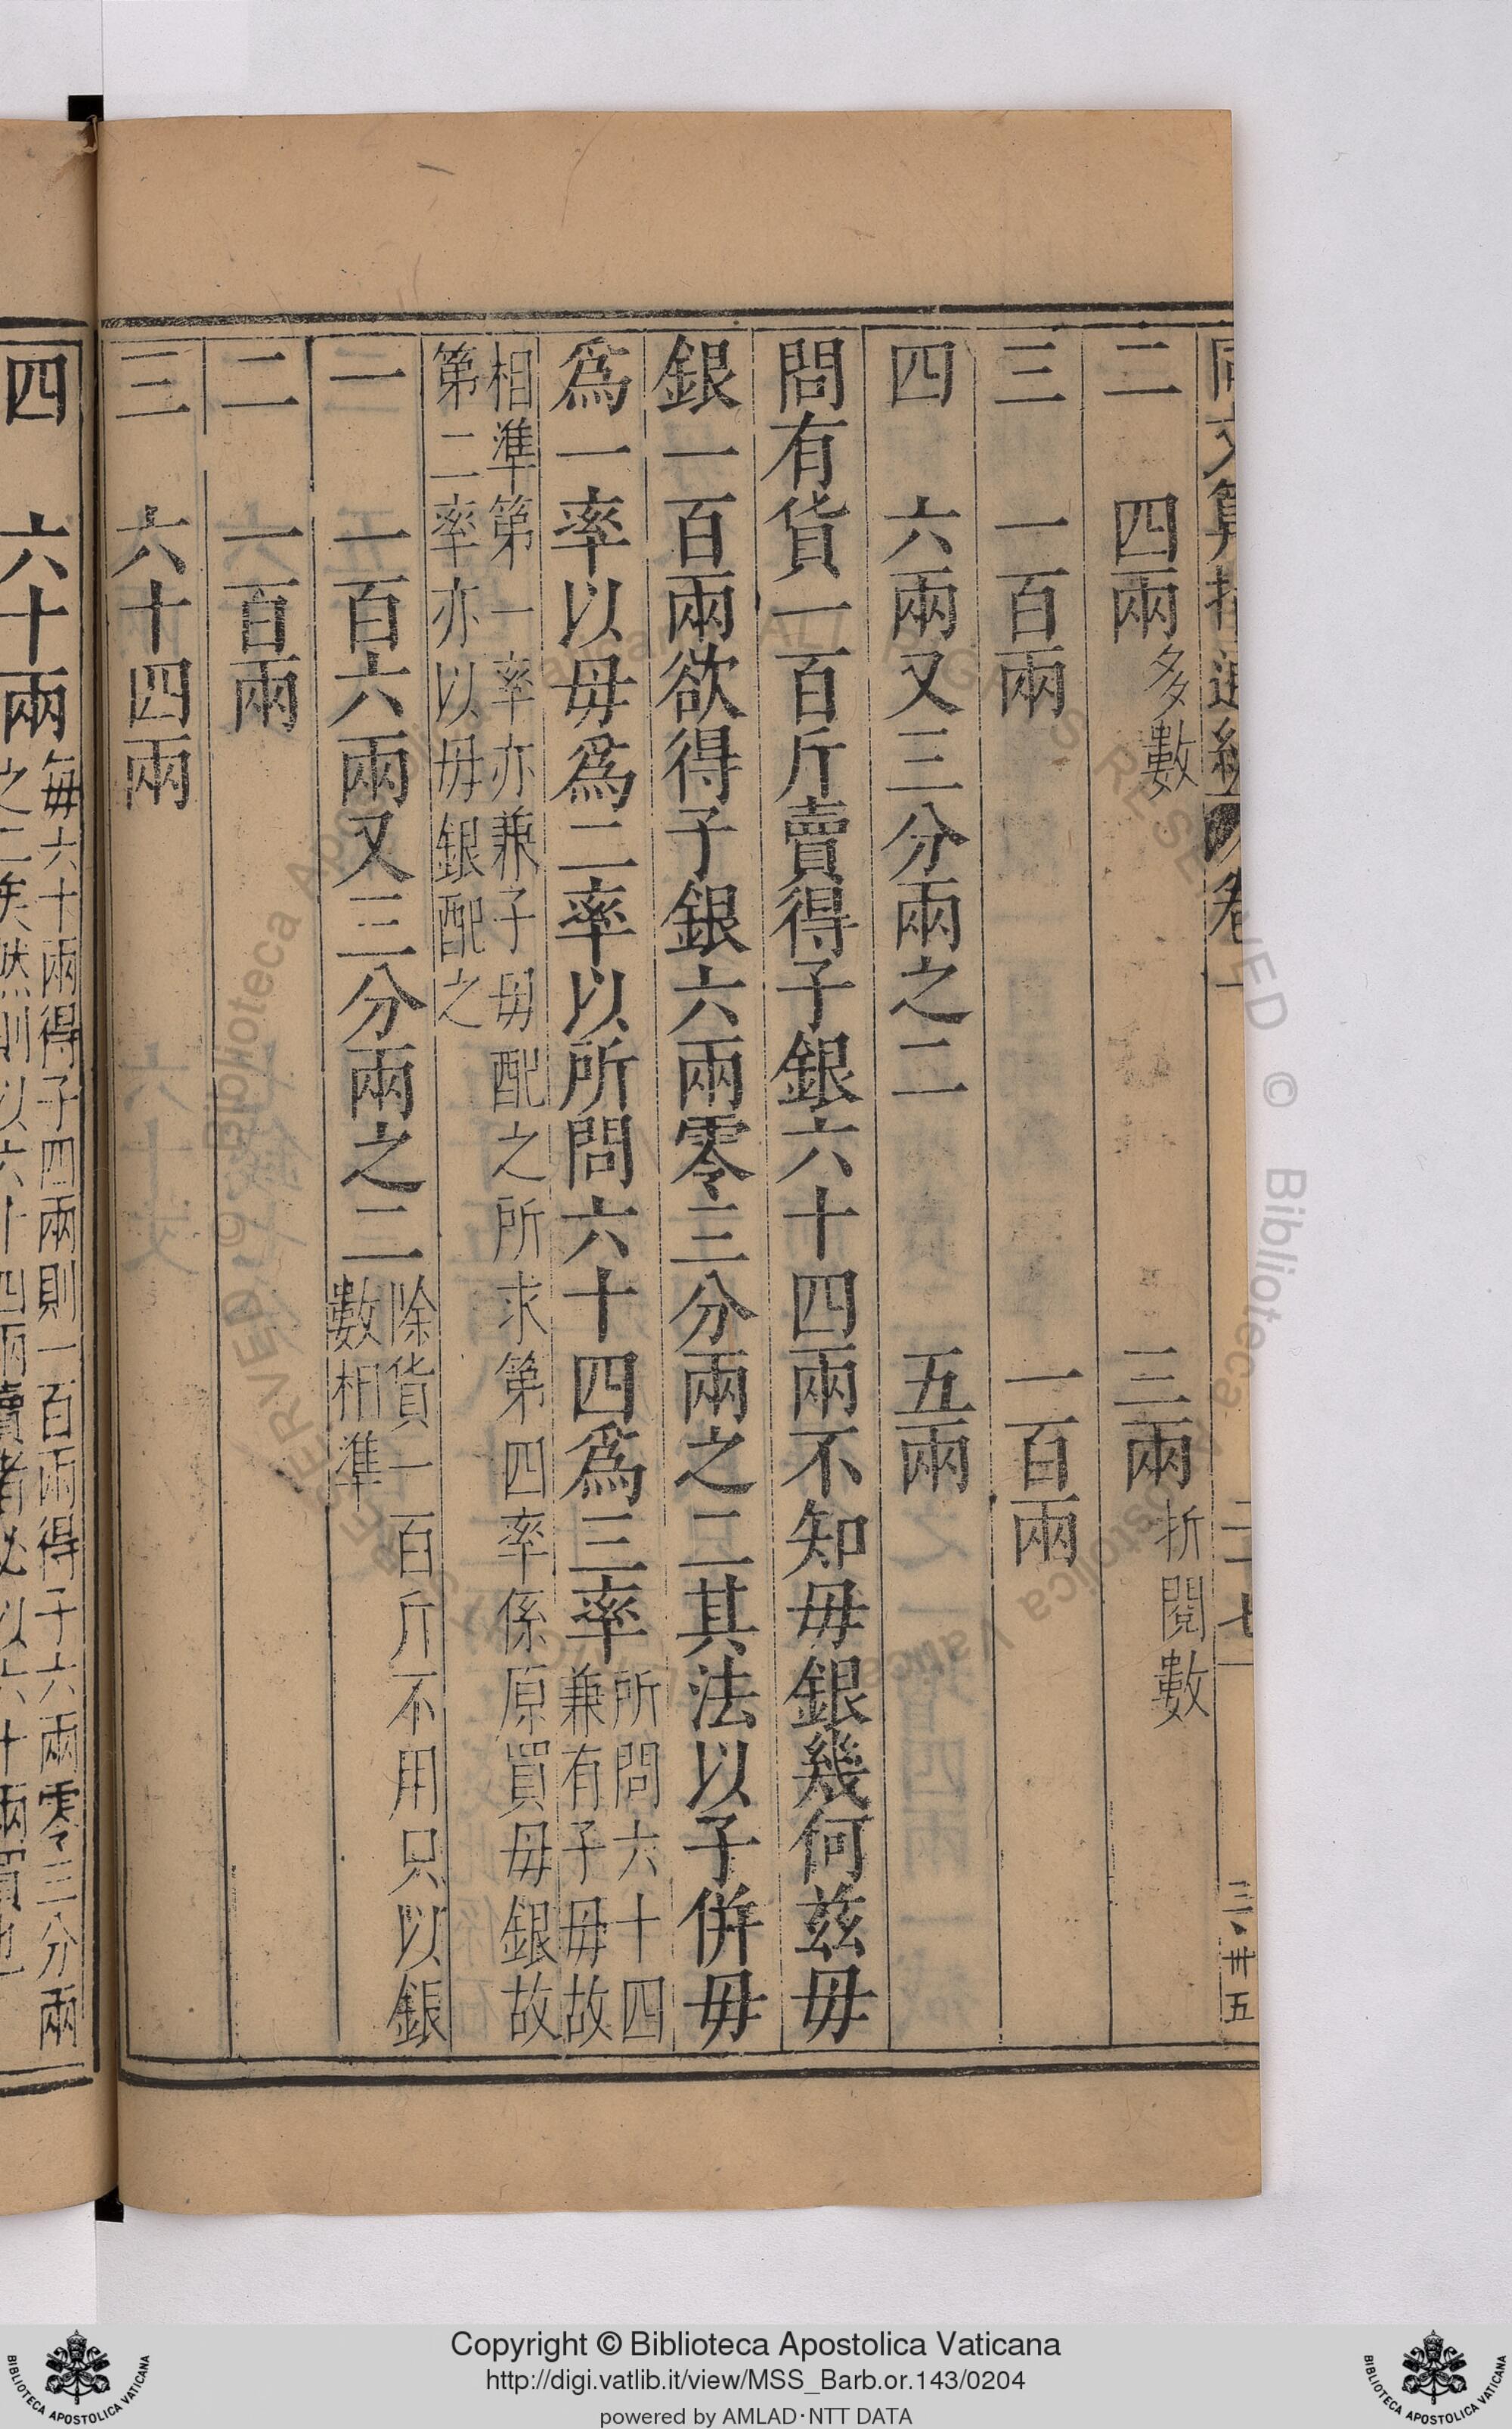 二　四兩多數　三兩折閱數
三　一百兩　一百兩
四　六兩又三分兩之二　五兩
問有貨一百斤賣得子銀六十四兩不知毋銀幾何兹毋
銀一百兩欲得子銀六兩零三分兩之二其法以子併毋
爲一率以毋爲二率以所問六十四爲三率
所問六十四
兼有子毋故
相準第一率亦兼子毋配之所求第四率係原買毋銀故
第二率亦以毋銀配之
一　一百六兩又三分兩之二
除貨一百斤不用只以銀
數相準
二　一百兩
三　六十四兩
四　六十兩
每六十兩得子四兩則一百兩得子六兩零三分兩
之二矣然則以六十四兩賣者必以六十兩買也
三卅五
Copyright © Biblioteca Apostolica Vaticana
http://digi.vatlib.it/view/MSS_Barb.or.143/0204
powered by AMLAD·NTT DATA
BIBLIOTECA APOSTOLICA VATICANA
BIBLIOTECA APOSTOLICA VATICANA